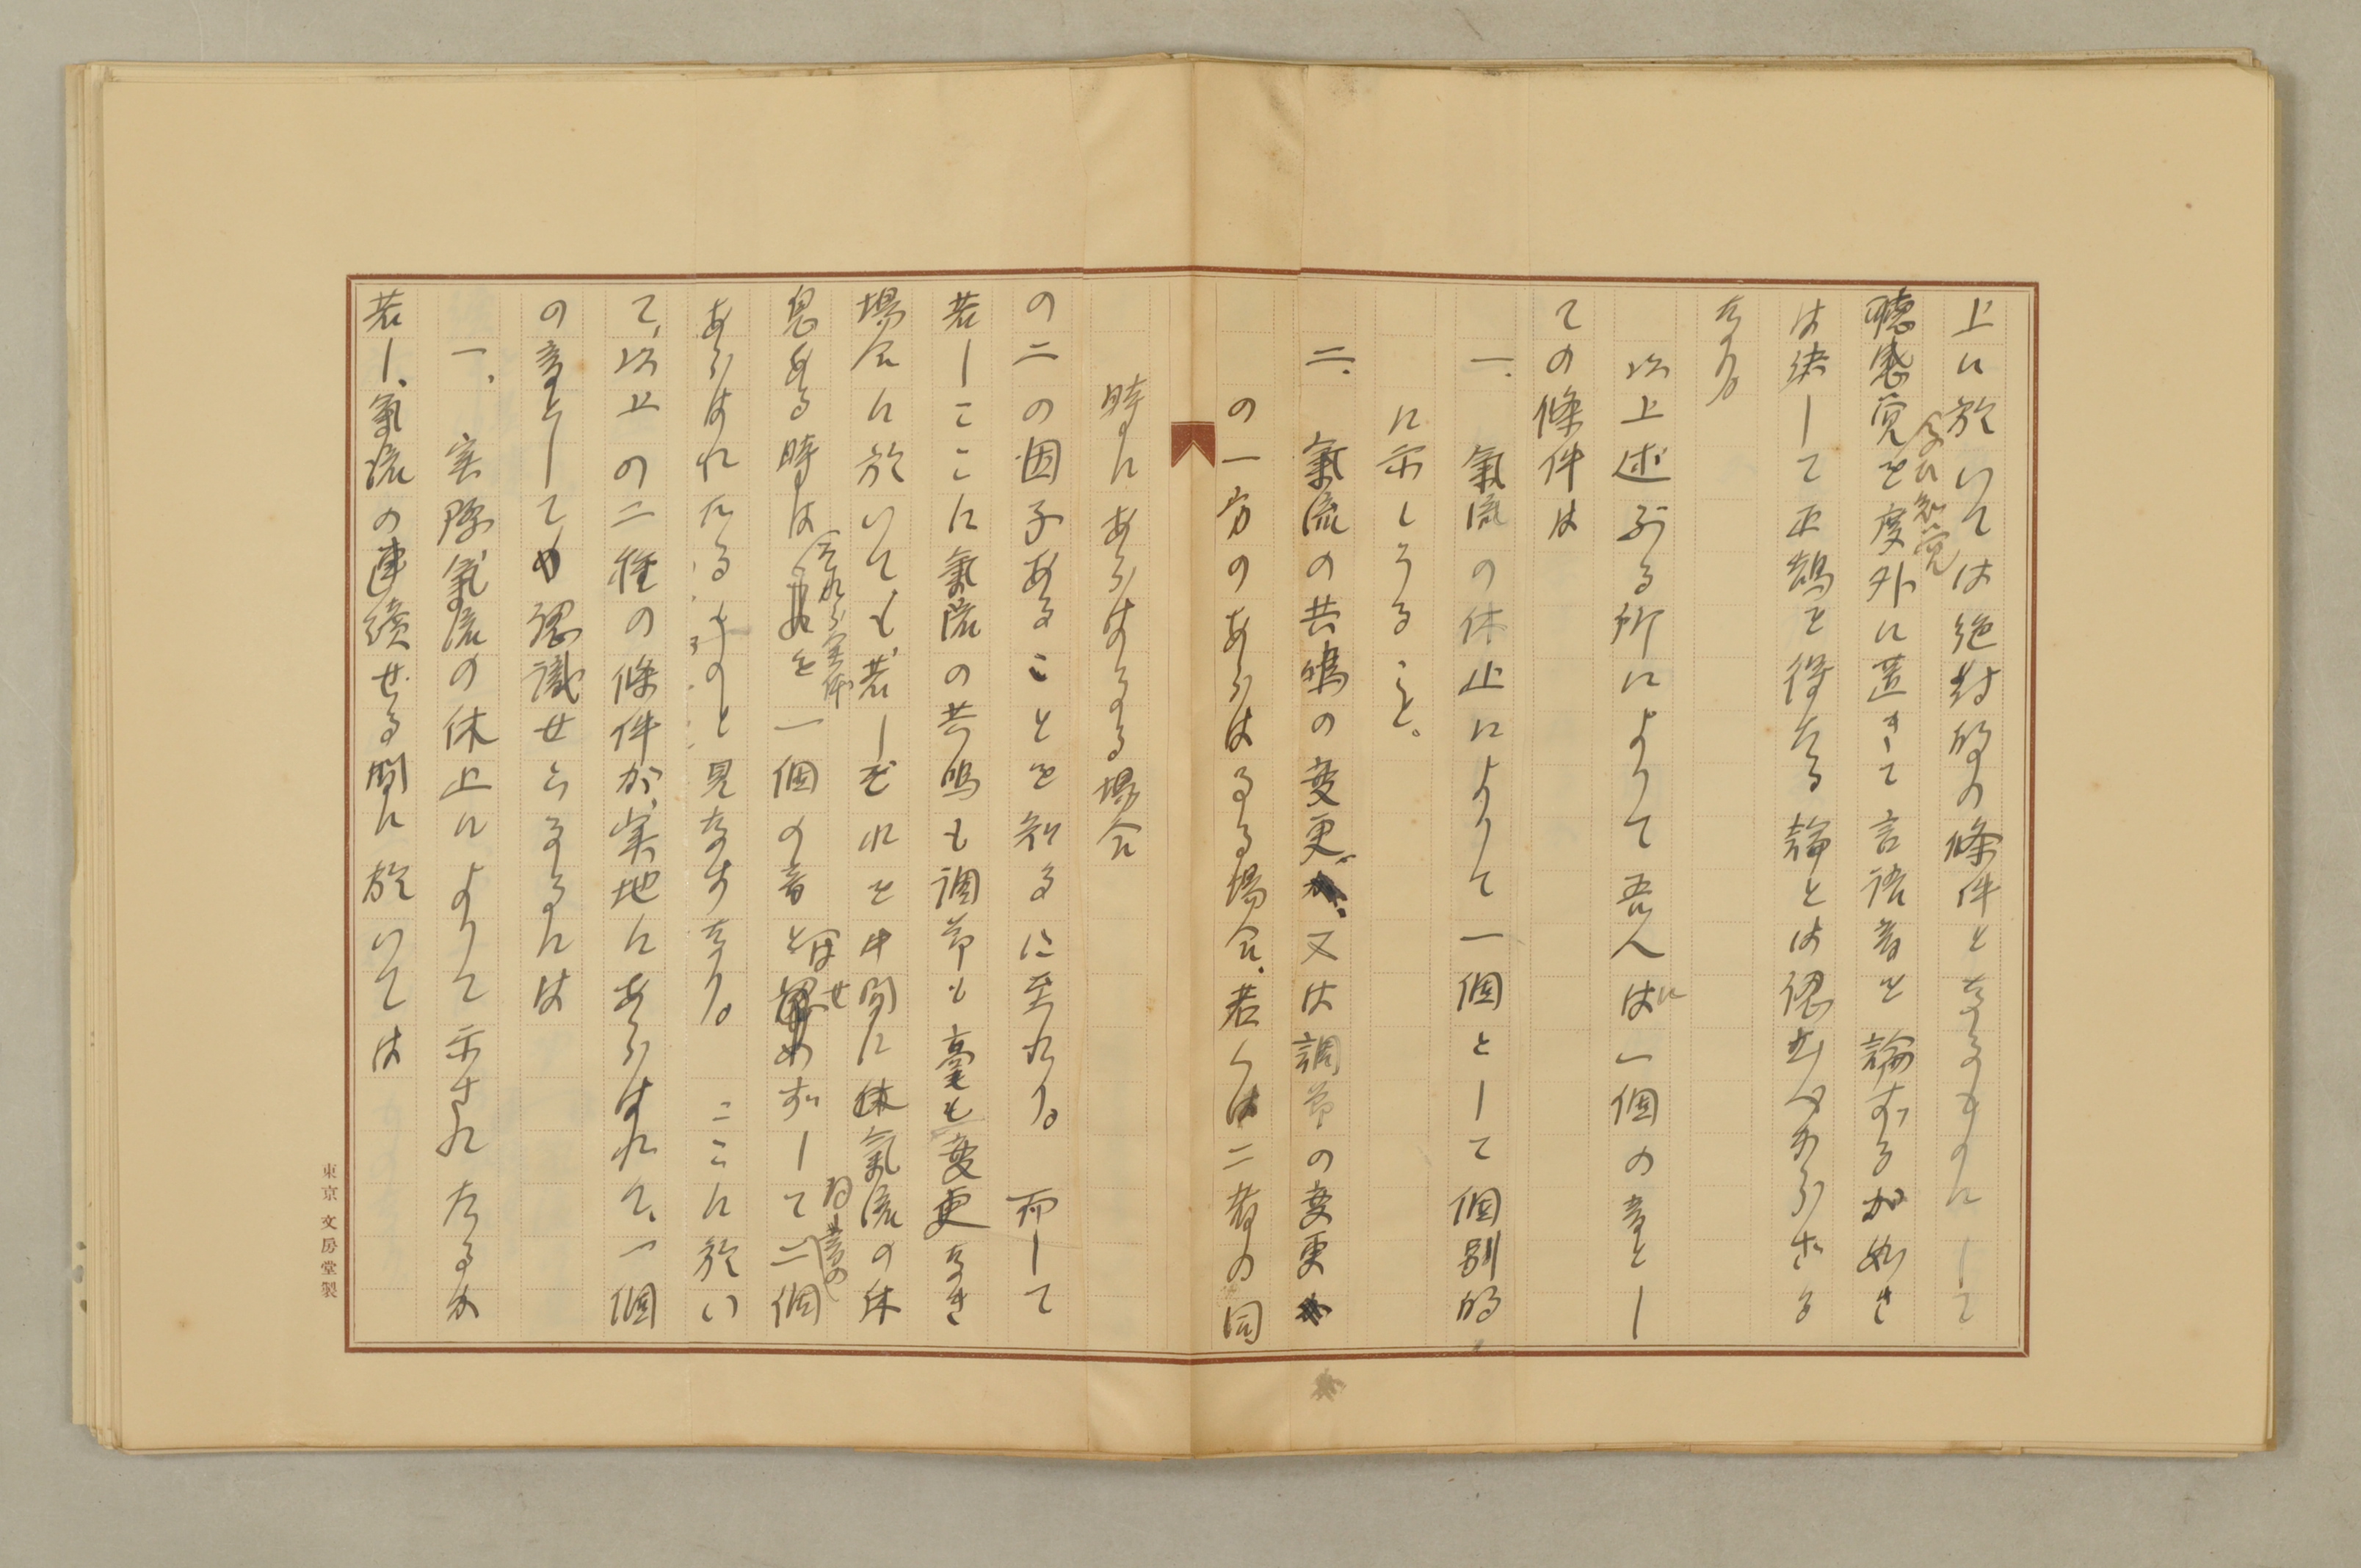 上に於いては絶対的の條件となるものにして
聴感覚及ひ知覚を度外に置きて言語音を論するが如き
は決して正鵠を得たる論とは認むべからざる
なり。
以上述ぶる所によりて吾人は一個の音とし
ての條件は
一、氣流の休止によりて一個として個別的
に示しうること。
二、氣流の共鳴の変更、又は調節の変更
の一方のあらはるる場合、若くは二者の同
時にあらはるる場合
の二の因子あることを知るに至れり。而して
若しここに氣流の共鳴も調節も毫も変更なき
場合に於いても、若しそれを中間に氣流の休
息ある時はそれら全体を一個の音とはせずして同し音の二個
あらはれたるものと見なすなり。ここに於い
て、以上の二種の條件が、実地にあらはれて、一個
の音として認識せらるるには
一、実際氣流の休止によりて示されたるか
若し、氣流の連續せる間に於いては
東京文房堂製